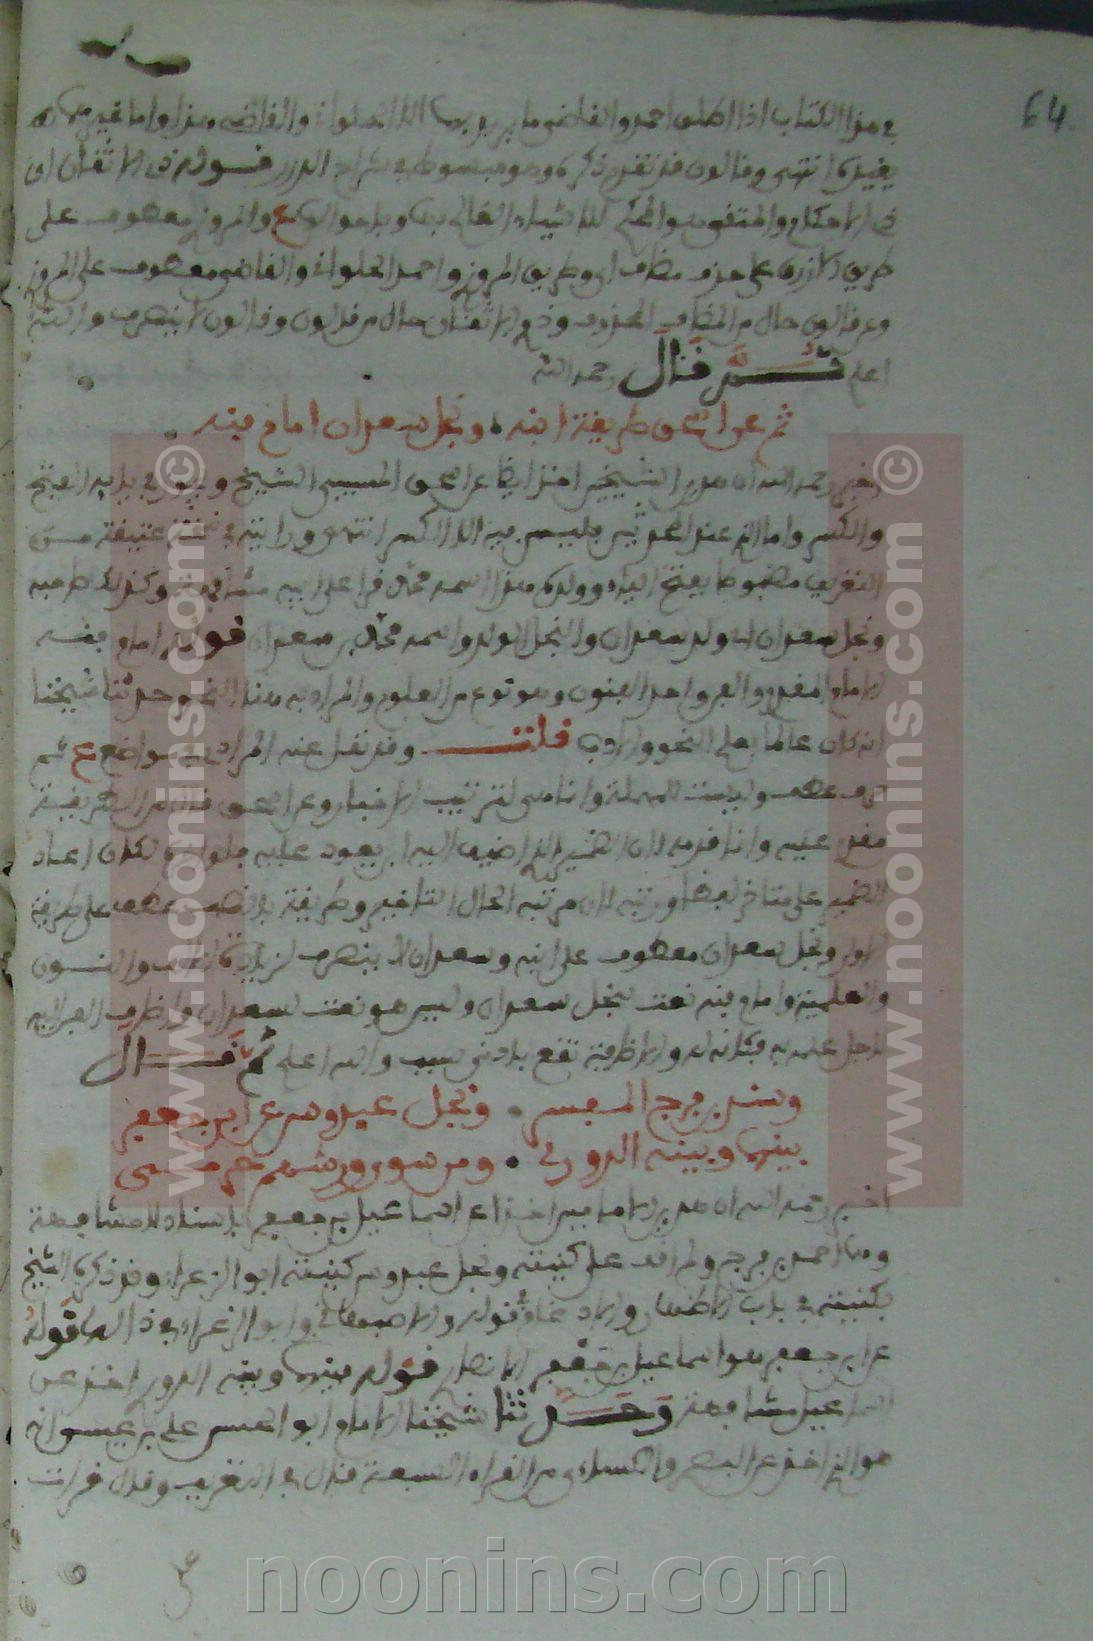 64
في هذا الكتاب اذا اطلق احمد والقاضي ما يريد بهما الا الحلواني والقاضي هذا واما غيرهما
يقيد انتهى وقالون قد تقدم ذكره وهو مبسوط في شراح الدرر قوله في الاتقان اي
في الاحكام والمتقن هو المحكم للاشياء العالم بها وباحوالها ع والمروزي معطوف على
طريق الازرق على حذف مضاف اي وطريق المروزي واحمد الحلواني والقاضي معطوف على المروزي
وعن قالون حال من المضاف المحذوف وذو الاتقان حال من قالون وقالون لا ينصرف والله
اعلم ثم قال رحمه الله
ثم عن اسحق طريقة ابنه ونجل سعدان امام فنه
اخبر رحمه الله ان هذين الشيخين اخذا ايضا عن اسحق المسيبي الشيخ ويجوز في يايه الفتح
والكسر واما الذي عند المحدثين فليس فيه الا الكسر انتهى ورايته في نسخة عتيقة من
التعريف مضبوطا بفتح الياء وولده هذا اسمه محمد قرا على ابيه مشافهة وكذلك صاحبه
ونجل سعدان اي ولد سعدان والنجل الولد واسمه محمد بن سعدان قوله امام فنه
الامام المقدم والفن واحد الفنون وهو نوع من العلوم والمراد به هنا النحو حدثنا شيخنا
انه كان عالما بعلم النحو والادب قلت وقد نقل عنه المرادي في مواضع ع ثم
حرف عطف وليست للمهلة وانما هي لترتيب الاخبار وعن اسحق حال من الطريقة
مقدم عليه وانما قدمه لان الضمير الذي اضيف اليه ابن يعود عليه فلو اخره لكان اعاد
الضمير على متاخر لفظا ورتبة لان مرتبة الحال التاخير وطريقة بالنصب عطف على طريق
الاول ونجل سعدان معطوف على ابنه وسعدان لا ينصرف لزيادة الالف والنون
والعلمية وامام فنه نعت لنجل سعدان وليس هو نعت لسعدان واضاف الفن اليه
لاجل علمه به فكانه له والاضافة تقع بادنى سبب والله اعلم ثم قال
وسند بن فرج المفسر ونجل عبدوس عن ابن جعفر
بينهما وبينه الدوري ومن سوى ورشهم حرمي
اخبر رحمه الله ان هذين الامامين اخذا عن اسماعيل بن جعفر باسناد لا مشافهة
وهما احمد بن فرج ولم اقف على كنيته ونجل عبدوس كنيته ابو الزعراء وقد ذكره الشيخ
بكنيته في باب الاظهار والادغام قوله والاصبهاني وابو الزعراء في ذال ما قوله
عن ابن جعفر هو اسماعيل بن جعفر الانصاري قوله بينهما وبينه الدوري اخذ عن
اسماعيل مشافهة وحدثنا شيخنا الامام ابو الحسن علي بن عيسى انه
هو الذي اخذ عن البصري والكسائي من القراء السبعة قال في التعريف وقال قرات
© www.noonins.com
© www.noonins.com
noonins.com